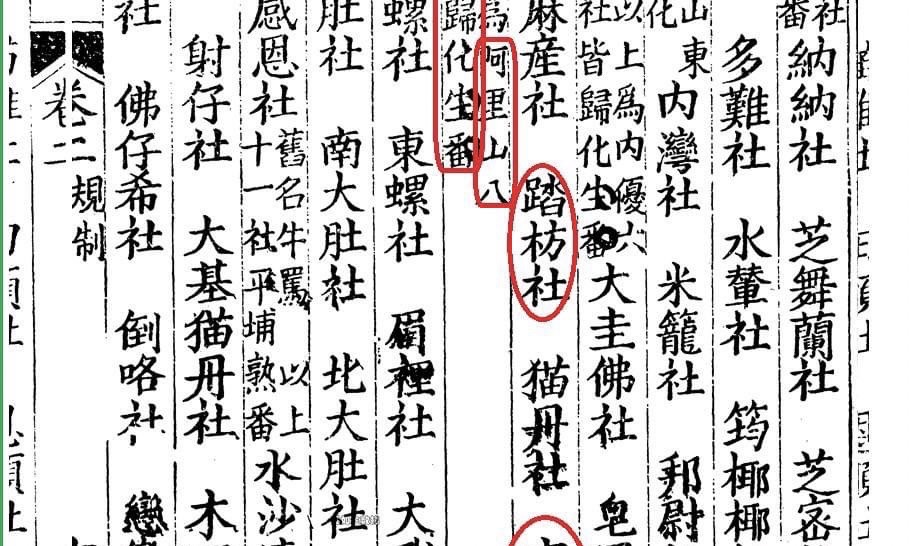 社
番納納社 芝舞蘭社 芝密
多難社 水輦社 筠椰椰
山東
化
內灣社 米籠社
以上為內優六
社皆歸化生番
大圭佛社 皂
麻產社 踏枋社 猫丹社
為阿里山八
歸化生番
螺社 東螺社 眉裡社 大
肚社 南大肚社 北大肚社
感恩社
舊名牛罵 以上
十一社平埔熟番
水沙
射仔社 大基猫丹社 木
社 佛仔希社 倒咯社 巒
卷二 規制